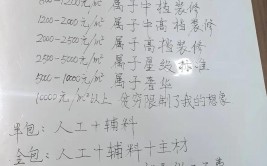 800-1200元/m² 属于中档装修
1200-2000元/m² 属于中高档装修
2000-2500元/m² 属于高档装修
2500-5000元/m² 属于星级标准
5000-10000元/m² 属于奢华
10000元/m²以上 贫穷限制了我的想象
半包：人工+辅料
全包：人工+辅料+主材